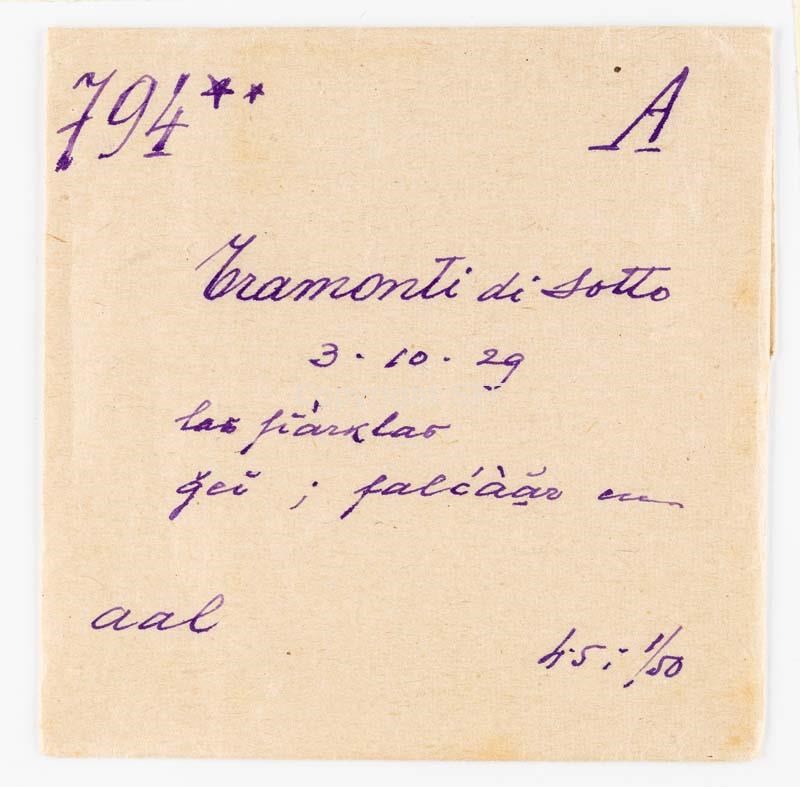 794** A
Tramonti di Sotto
3 · 10 · 29
las fiàrklas
ğei ; falćàär
aal
45; 1/50